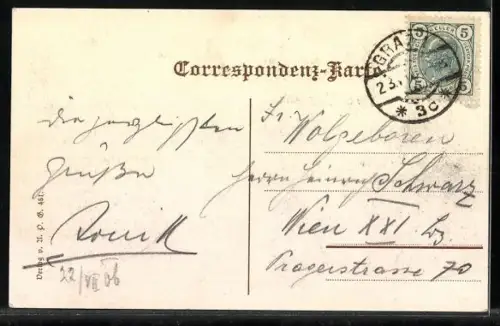 Correspondenz-Karte
GRAZ
5 5
5 5
23.
* 3c *
die herzlichsten
Grüße
22/VII 06
Verlag v. A. P. G. 461.
Sr. Wolgeboren
Herrn Heinrich Schwarz
Wien XXI. Bz.
Pragerstrasse 70